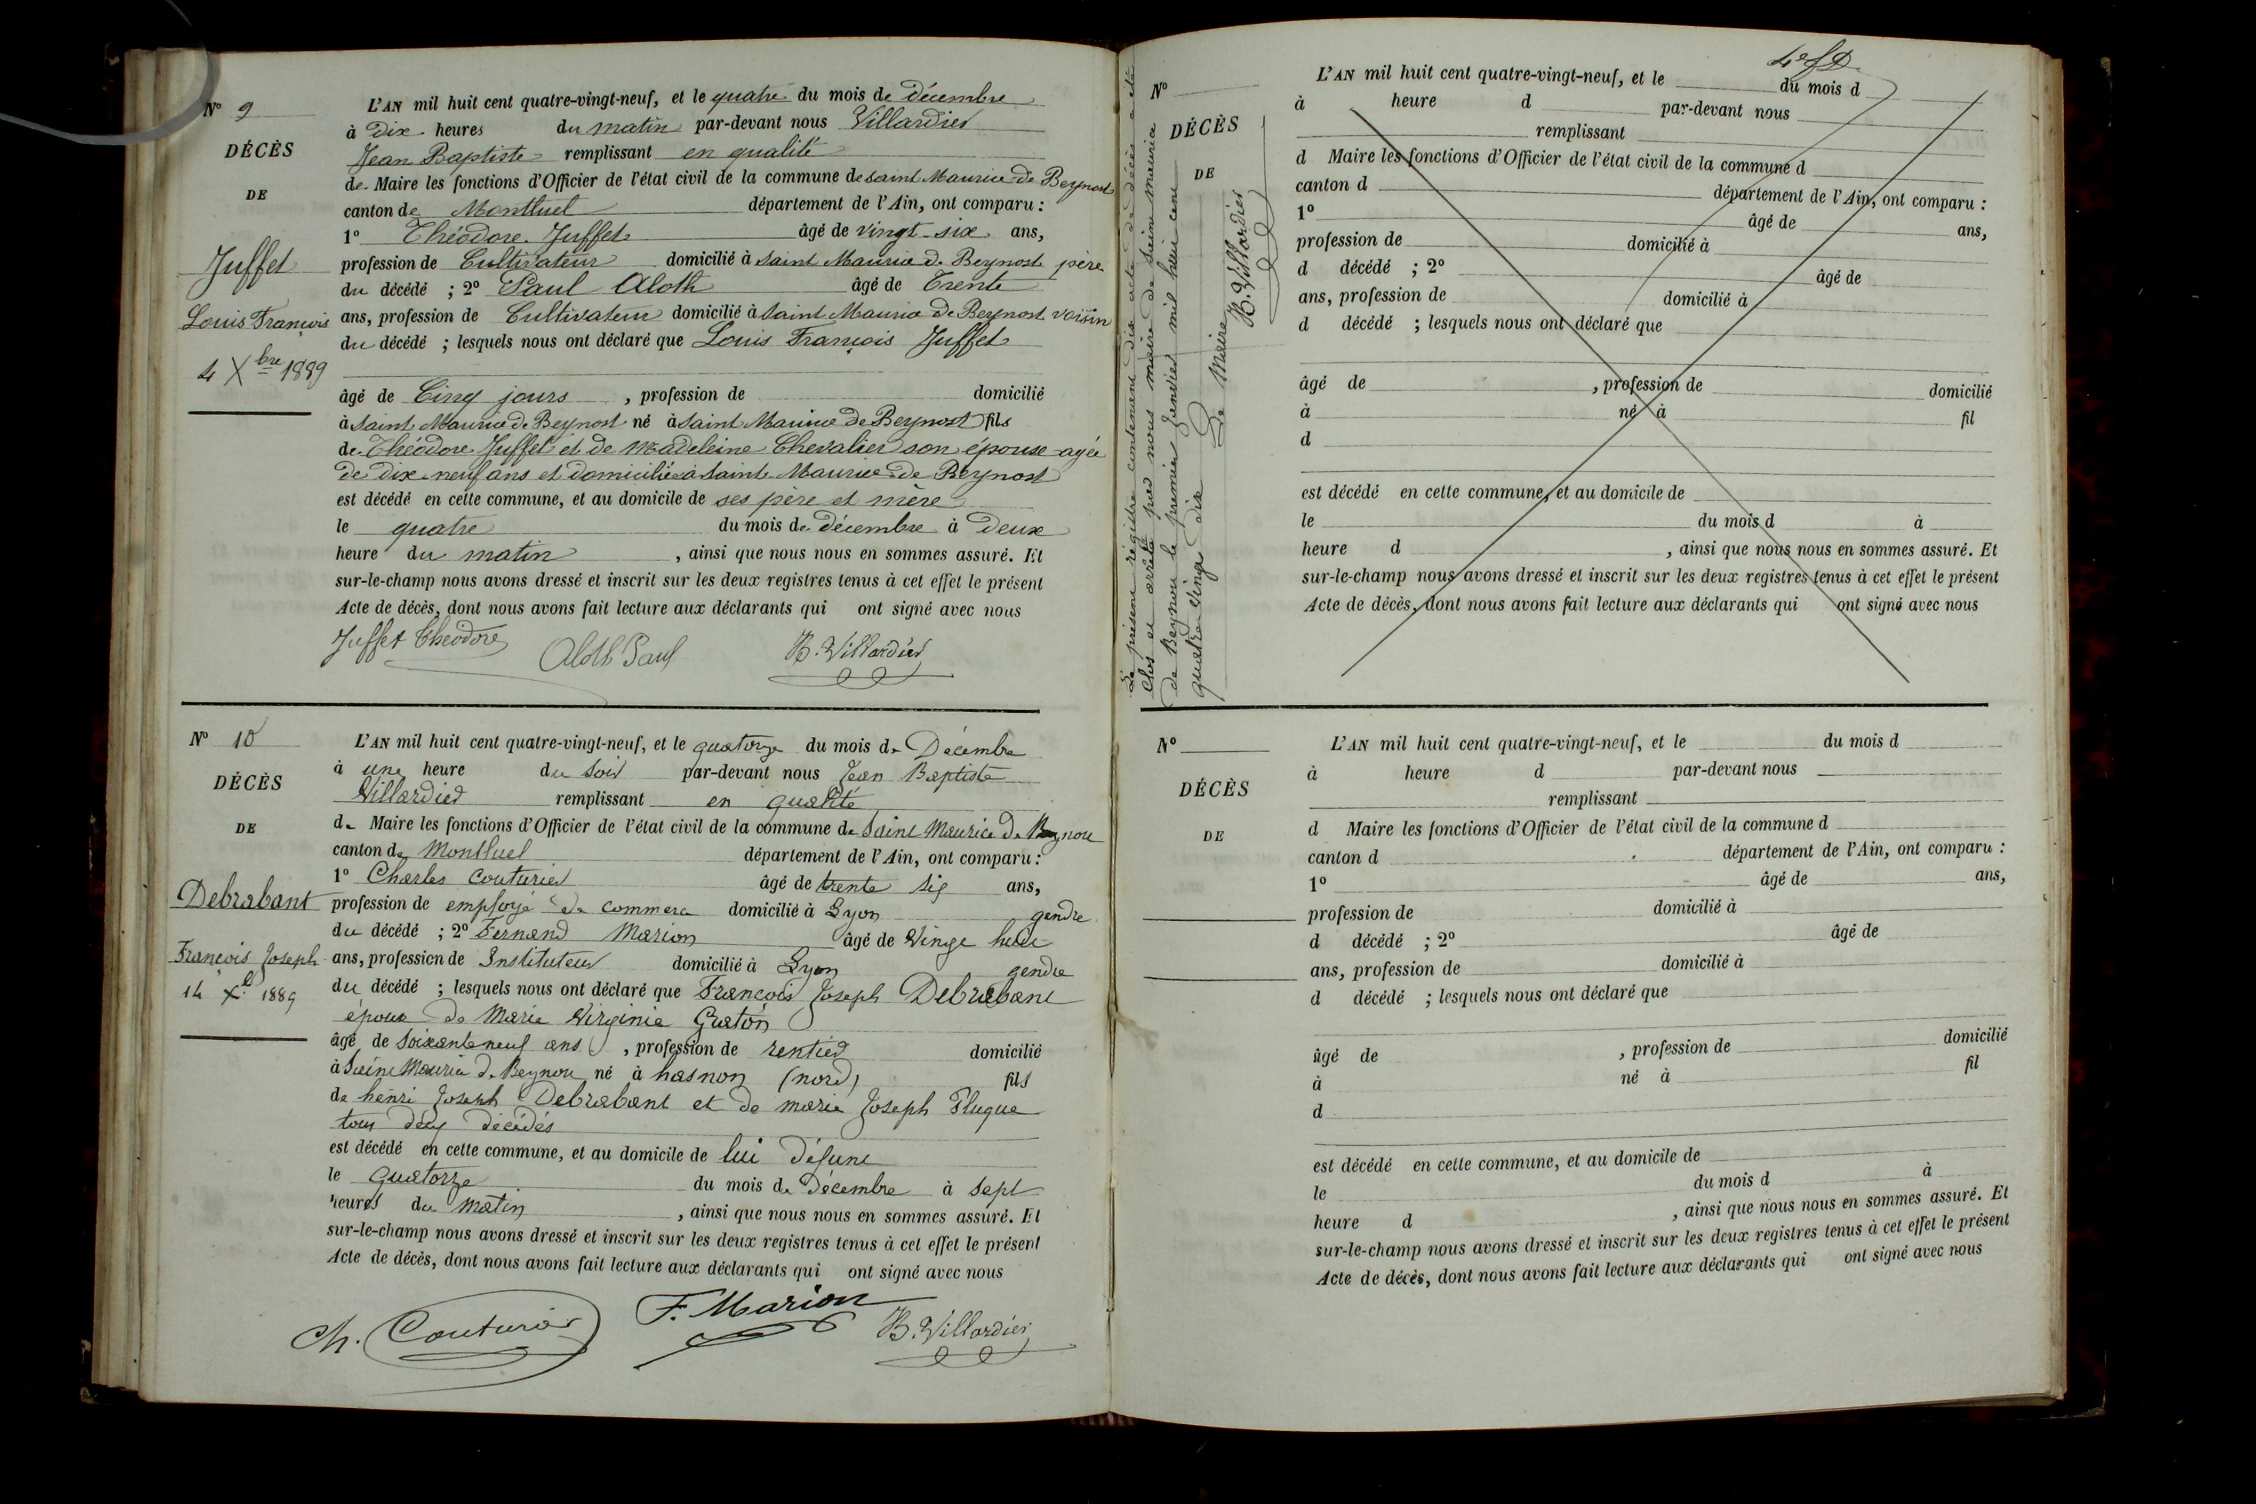 N° 9
DÉCÈS
DE
Juffet
Louis François
4 Xbre 1889
L'AN mil huit cent quatre-vingt-neuf, et le quatre du mois de décembre
à Dix heures du matin par-devant nous Villardier
Jean Baptiste remplissant en qualité
de Maire les fonctions d'Officier de l'état civil de la commune de saint Maurice de Beynost
canton de Montluel département de l'Ain, ont comparu :
1° Théodore Juffet âgé de vingt-six ans,
profession de Cultivateur domicilié à saint Maurice de Beynost père
du décédé ; 2° Paul Aloth âgé de Trente
ans, profession de Cultivateur domicilié à saint Maurice de Beynost voisin
du décédé ; lesquels nous ont déclaré que Louis François Juffet
âgé de Cinq jours , profession de domicilié
à saint Maurice de Beynost né à saint Maurice de Beynost fils
de Théodore Juffet et de Madeleine Chevalier son épouse agée
de dix neuf ans et domiciliée à saint Maurice de Beynost
est décédé en cette commune, et au domicile de ses père et mère
le quatre du mois de décembre à deux
heure du matin , ainsi que nous nous en sommes assuré. Et
sur-le-champ nous avons dressé et inscrit sur les deux registres tenus à cet effet le présent
Acte de décès, dont nous avons fait lecture aux déclarants qui ont signé avec nous
Juffet Théodore Aloth Paul B. Villardier
N° 10
DÉCÈS
DE
Debrabant
François Joseph
14 Xb 1889
L'AN mil huit cent quatre-vingt-neuf, et le quatorze du mois de Décembre
à une heure du soir par-devant nous Jean Baptiste
Villardier remplissant en qualité
de Maire les fonctions d'Officier de l'état civil de la commune de Saint Maurice de Beynou
canton de Montluel département de l'Ain, ont comparu :
1° Charles Couturier âgé de trente six ans,
profession de employé de commerce domicilié à Lyon gendre
du décédé ; 2° Fernand Marion âgé de Vingt huit
ans, profession de Instituteur domicilié à Lyon gendre
du décédé ; lesquels nous ont déclaré que François Joseph Debrabant
époux de Marie Virginie Graton
âgé de soixante neuf ans , profession de rentier domicilié
à Saint Maurice de Beynou né à hasnon (nord) fils
de henri Joseph Debrabant et de marie Joseph Fluque
tous déux décédés
est décédé en cette commune, et au domicile de lui défunt
le quatorze du mois de Décembre à sept
heures du matin , ainsi que nous nous en sommes assuré. Et
sur-le-champ nous avons dressé et inscrit sur les deux registres tenus à cet effet le présent
Acte de décès, dont nous avons fait lecture aux déclarants qui ont signé avec nous
Ch. Couturier F. Marion B. Villardier
Le présent registre contenant dix acte de décès a été
Clos et arrêté par nous maire de Saint maurice
de Beynou le premier Janvier mil huit cent
quatre vingt dix
Le Maire
B. Villardier
N°
DÉCÈS
DE
L'AN mil huit cent quatre-vingt-neuf, et le du mois d
à heure d par-devant nous
remplissant
d Maire les fonctions d'Officier de l'état civil de la commune d
canton d département de l'Ain, ont comparu :
1° âgé de ans,
profession de domicilié à
d décédé ; 2° âgé de
ans, profession de domicilié à
d décédé ; lesquels nous ont déclaré que
âgé de , profession de domicilié
à né à fil
d
est décédé en cette commune, et au domicile de
le du mois d à
heure d , ainsi que nous nous en sommes assuré. Et
sur-le-champ nous avons dressé et inscrit sur les deux registres tenus à cet effet le présent
Acte de décès, dont nous avons fait lecture aux déclarants qui ont signé avec nous
N°
DÉCÈS
DE
L'AN mil huit cent quatre-vingt-neuf, et le du mois d
à heure d par-devant nous
remplissant
d Maire les fonctions d'Officier de l'état civil de la commune d
canton d département de l'Ain, ont comparu :
1° âgé de ans,
profession de domicilié à
d décédé ; 2° âgé de
ans, profession de domicilié à
d décédé ; lesquels nous ont déclaré que
âgé de , profession de domicilié
à né à fil
d
est décédé en cette commune, et au domicile de
le du mois d à
heure d , ainsi que nous nous en sommes assuré. Et
sur-le-champ nous avons dressé et inscrit sur les deux registres tenus à cet effet le présent
Acte de décès, dont nous avons fait lecture aux déclarants qui ont signé avec nous